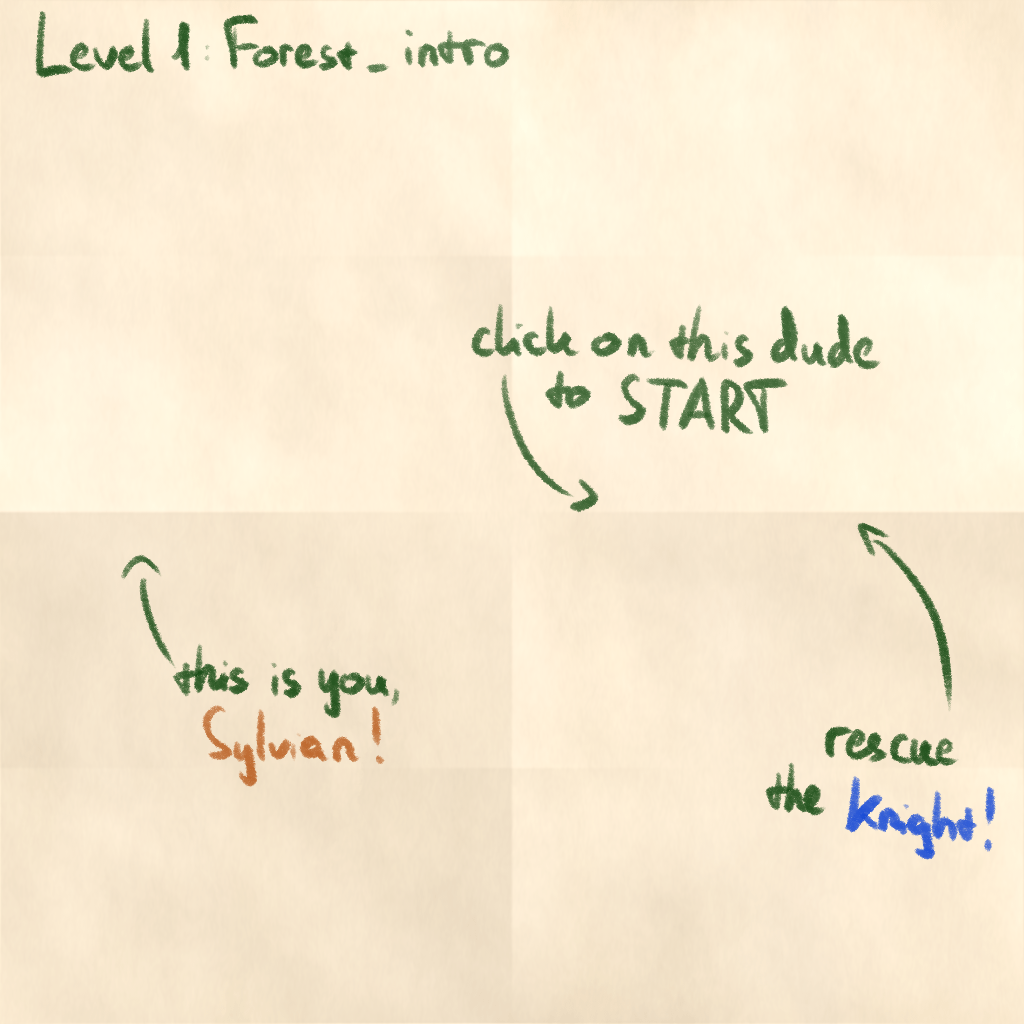 Level 1: Forest_intro
click on this dude
to START
this is you,
Sylvian!
rescue
the Knight!